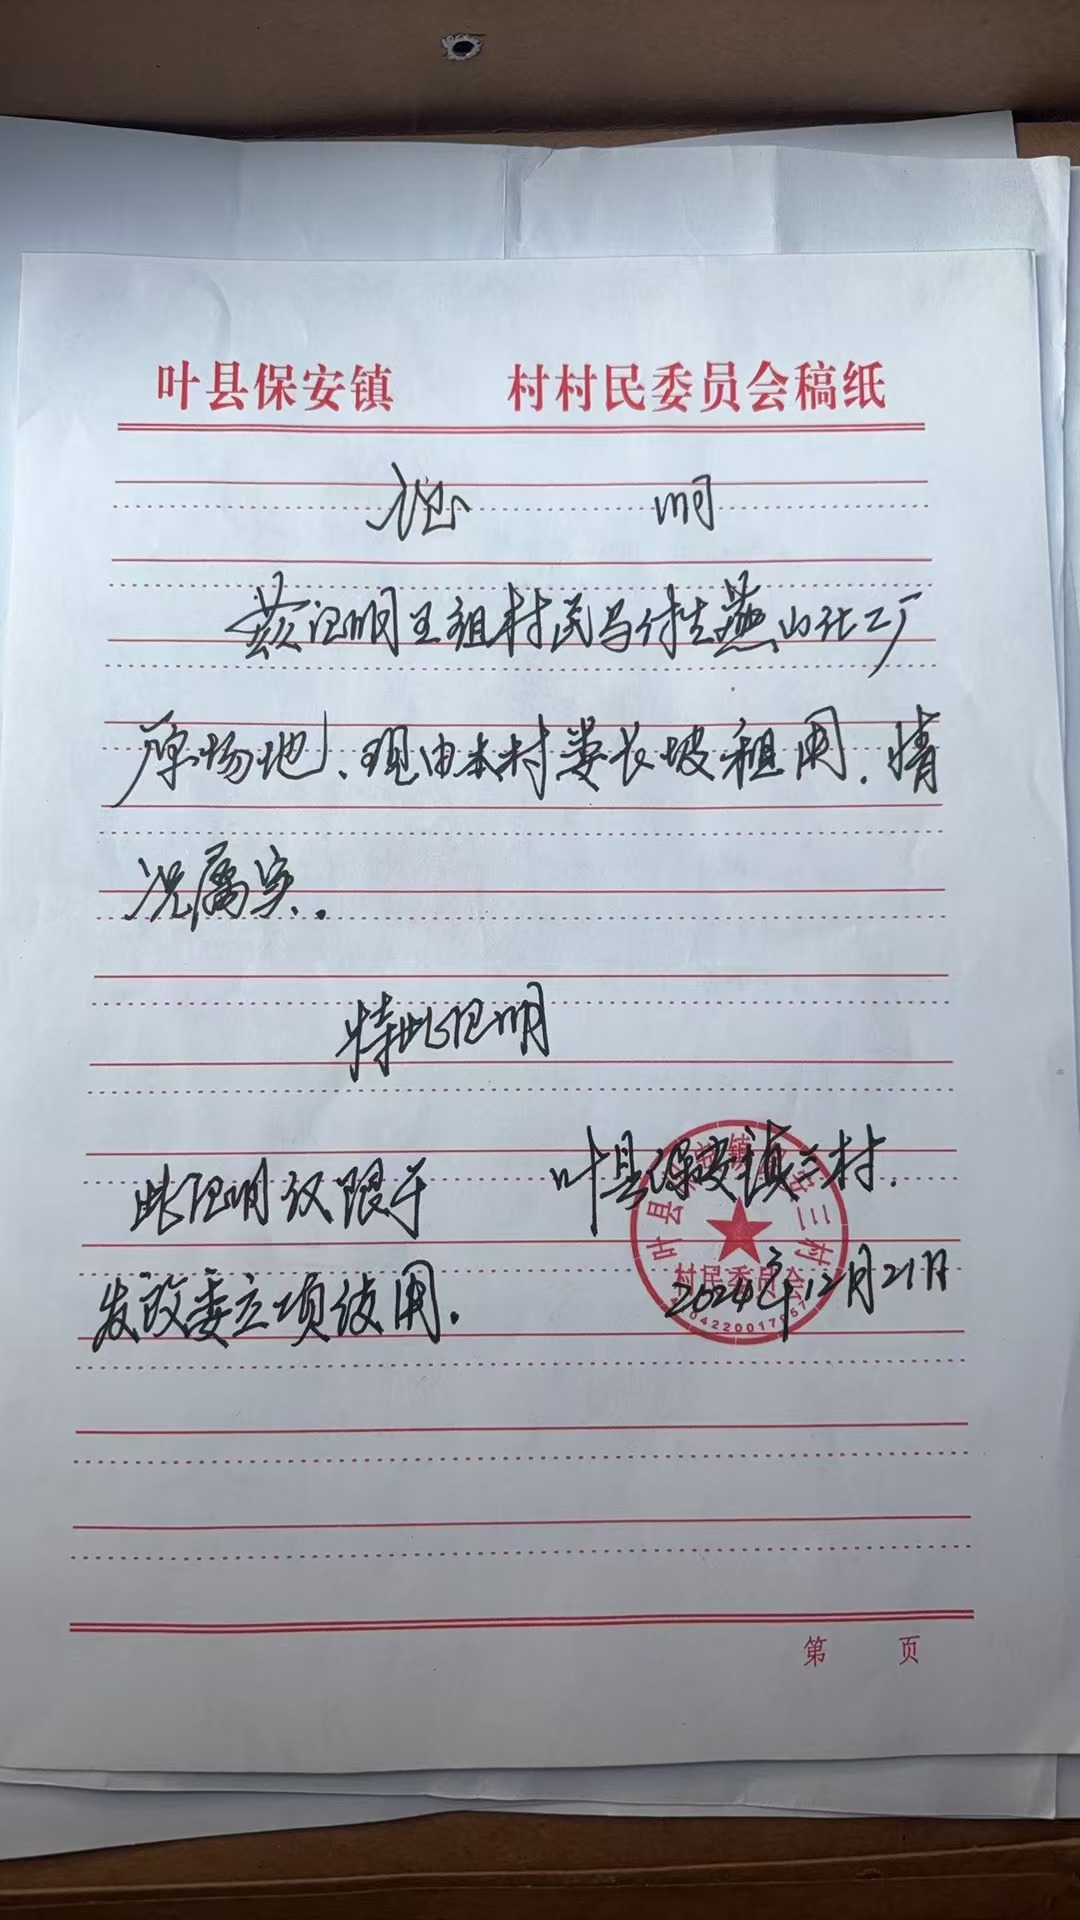 叶县保安镇 村村民委员会稿纸
证 明
兹证明王组村民马付生燕山化工厂
原场地、现由本村娄长坡租用.情
况属实.
特此证明
此证明仅限于
发改委立项使用.
叶县保安镇三村.
2024年12月21日
村民委员会
第 页